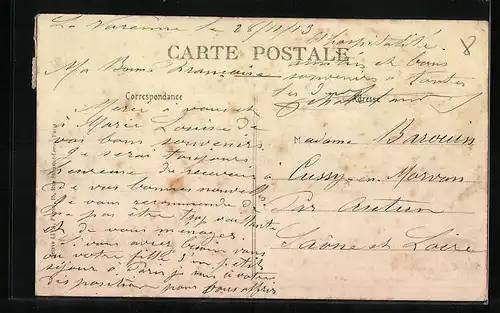 La Varenne le 28/12/13
CARTE POSTALE
Ma Bonne Françoise
Correspondance
Merci à vous et
à Marie Louise de
vos bons souvenirs
Je serai toujours
heureuse de recevoir
de vos bonnes nouvelles
Je vous recommande de
pas être trop
et de vous ménager.
Si vous aviez besoin vous
ou votre fille d'un petit
séjour à Paris je suis à votre
disposition pour vous offrir
l'hospitalité.
amitiés et bons
souvenirs à toutes
les
Adresse
Madame Barouin
à Cussy-en-Morvan
Par Autun
Saône et Loire
8